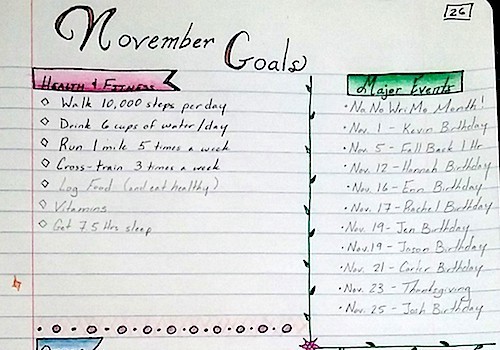 26
November Goals
Health & Fitness
Walk 10,000 steps per day
Drink 6 cups of water/day
Run 1 mile 5 times a week
Cross-train 3 times a week
Log Food (and eat healthy)
Vitamins
Get 7.5 Hrs sleep
Major Events
No No Wri Mo Month!
Nov. 1 - Kevin Birthday
Nov. 5 - Fall Back 1 Hr
Nov. 12 - Hannah Birthday
Nov. 16 - Erin Birthday
Nov. 17 - Rachel Birthday
Nov. 19 - Jen Birthday
Nov. 19 - Jason Birthday
Nov. 21 - Carter Birthday
Nov. 23 - Thanksgiving
Nov. 25 - Josh Birthday